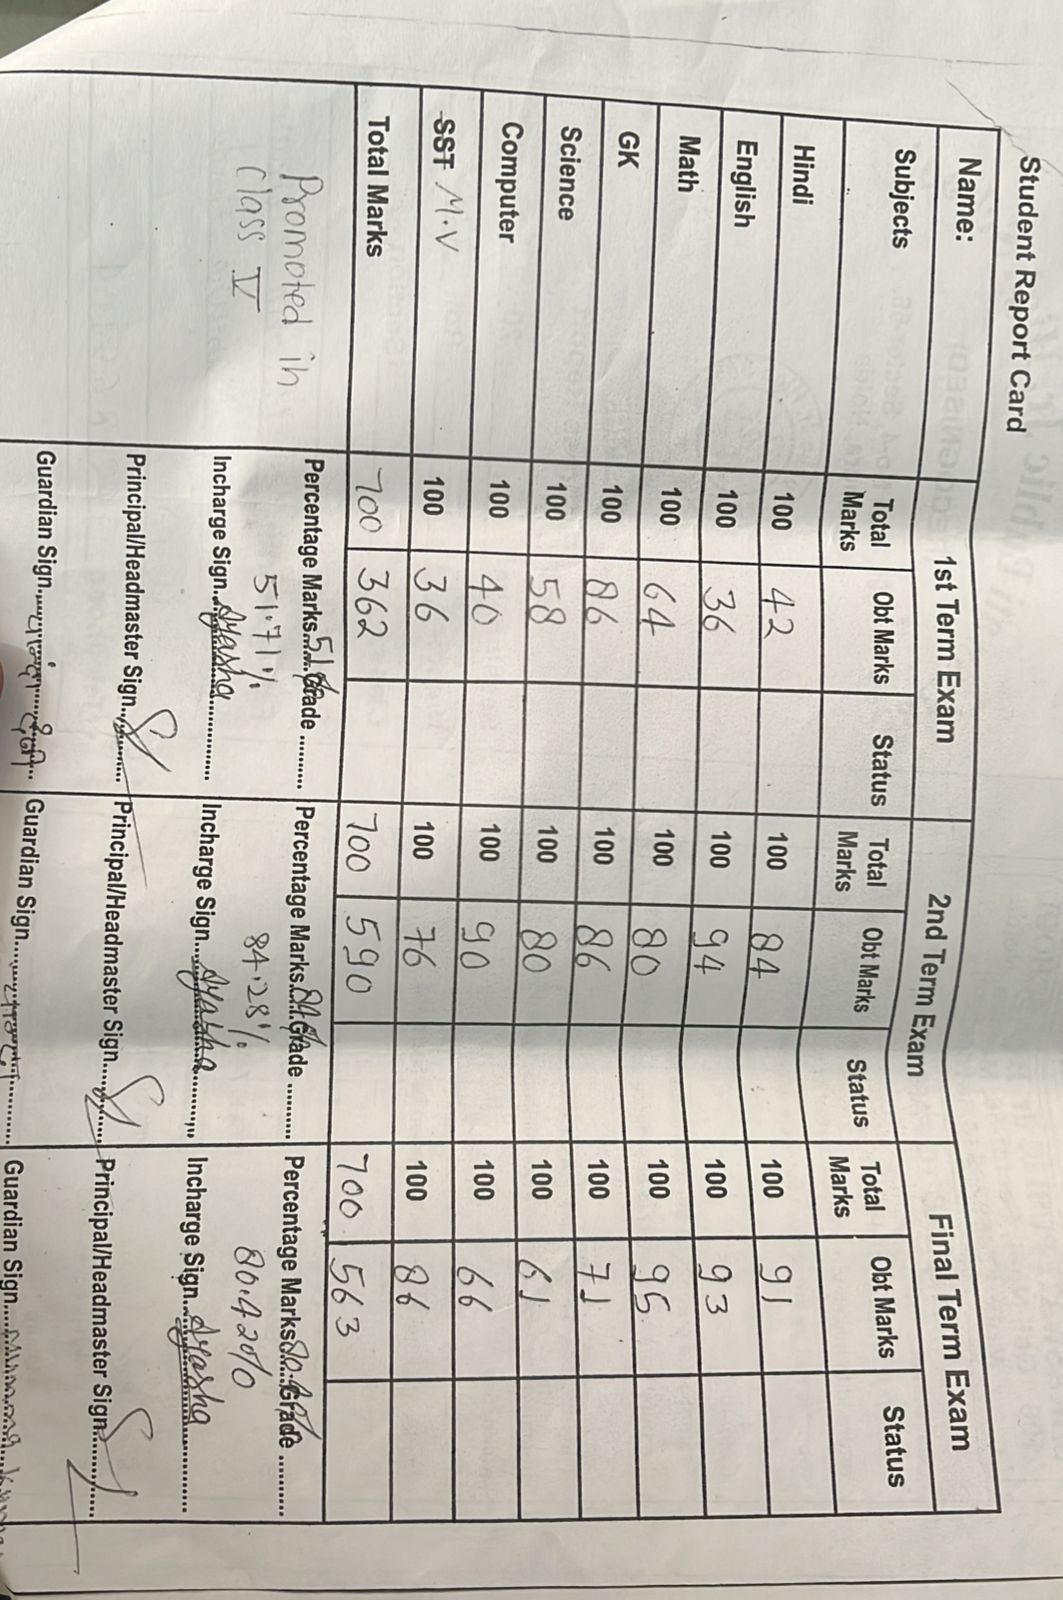 Student Report Card
Name: 1st Term Exam 2nd Term Exam Final Term Exam
Subjects Total Marks Obt Marks Status Total Marks Obt Marks Status Total Marks Obt Marks Status
Hindi 100 42 100 84 100 91
English 100 36 100 94 100 93
Math 100 64 100 80 100 95
GK 100 86 100 86 100 71
Science 100 58 100 80 100 61
Computer 100 40 100 90 100 66
SST M.V 100 36 100 76 100 86
Total Marks 700 362 700 590 700 563
Promoted in Percentage Marks Grade Percentage Marks Grade Percentage Marks Grade
Class V 51.71% 84.28% 80.42%
Incharge Sign Incharge Sign Incharge Sign
Principal/Headmaster Sign Principal/Headmaster Sign Principal/Headmaster Sign
Guardian Sign Guardian Sign Guardian Sign